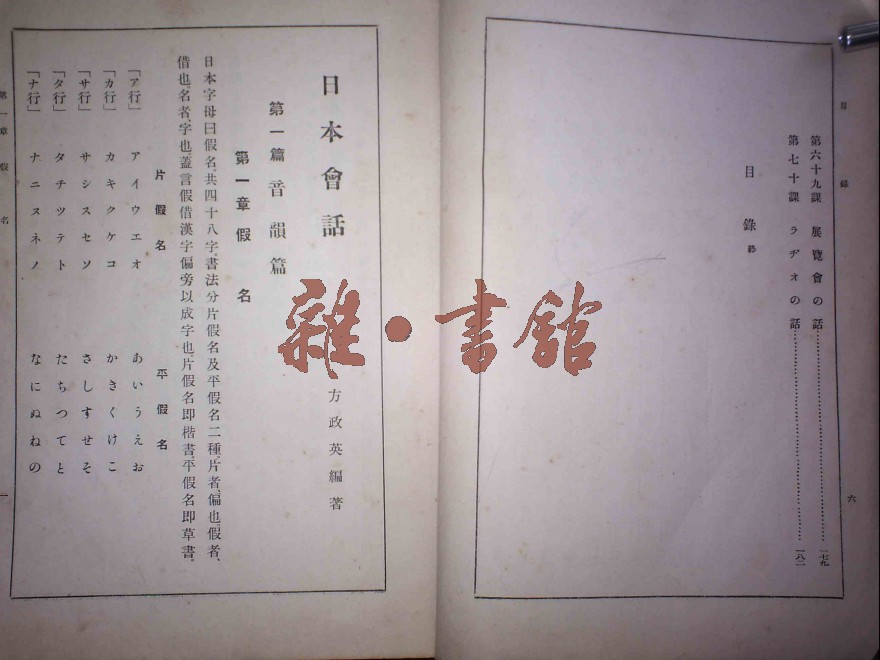 目錄
第六十九課 展覽會の話……一七九
第七十課 ラヂオの話……一八二
目錄終
六
日本會話
方政英編著
第一篇 音韻篇
第一章 假名
日本字母曰假名、共四十八字、書法分片假名及平假名二種、片者、偏也、假者、
借也、名者、字也、蓋言假借漢字偏旁以成字也、片假名即楷書、平假名即草書、
片假名 平假名
「ア行」 アイウエオ あいうえお
「カ行」 カキクケコ かきくけこ
「サ行」 サシスセソ さしすせそ
「タ行」 タチツテト たちつてと
「ナ行」 ナニヌネノ なにぬねの
第一章 假名
一
雜·書館